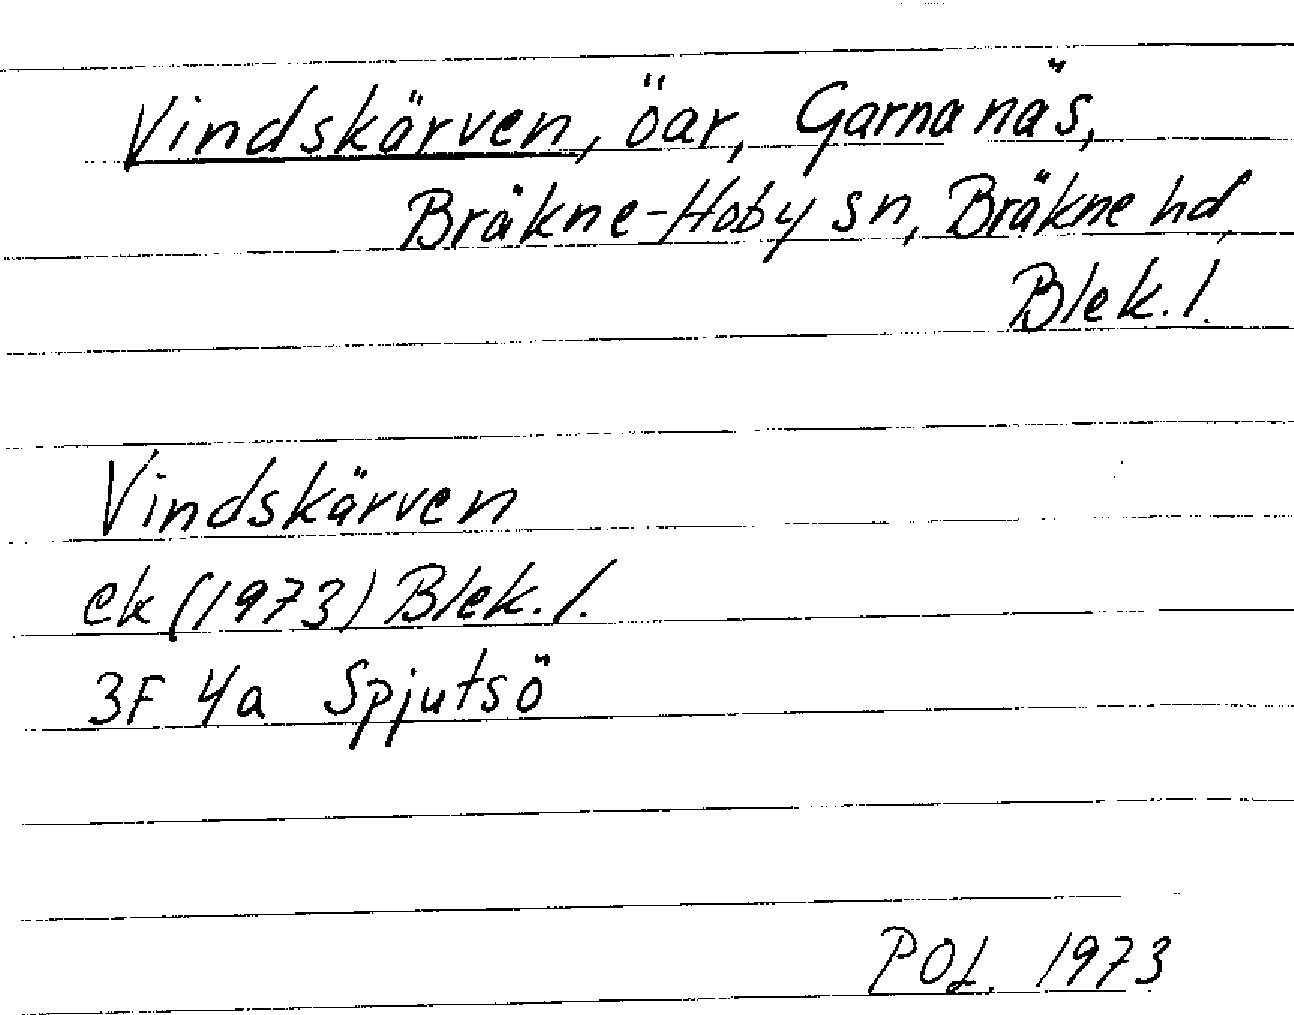 Vindskärven, öar, Garnanäs,
Bräkne-Hoby sn, Bräkne hd,
Blek. l.
Vindskärven
ek (1973) Blek. l.
3F 4a Spjutsö
POL. 1973